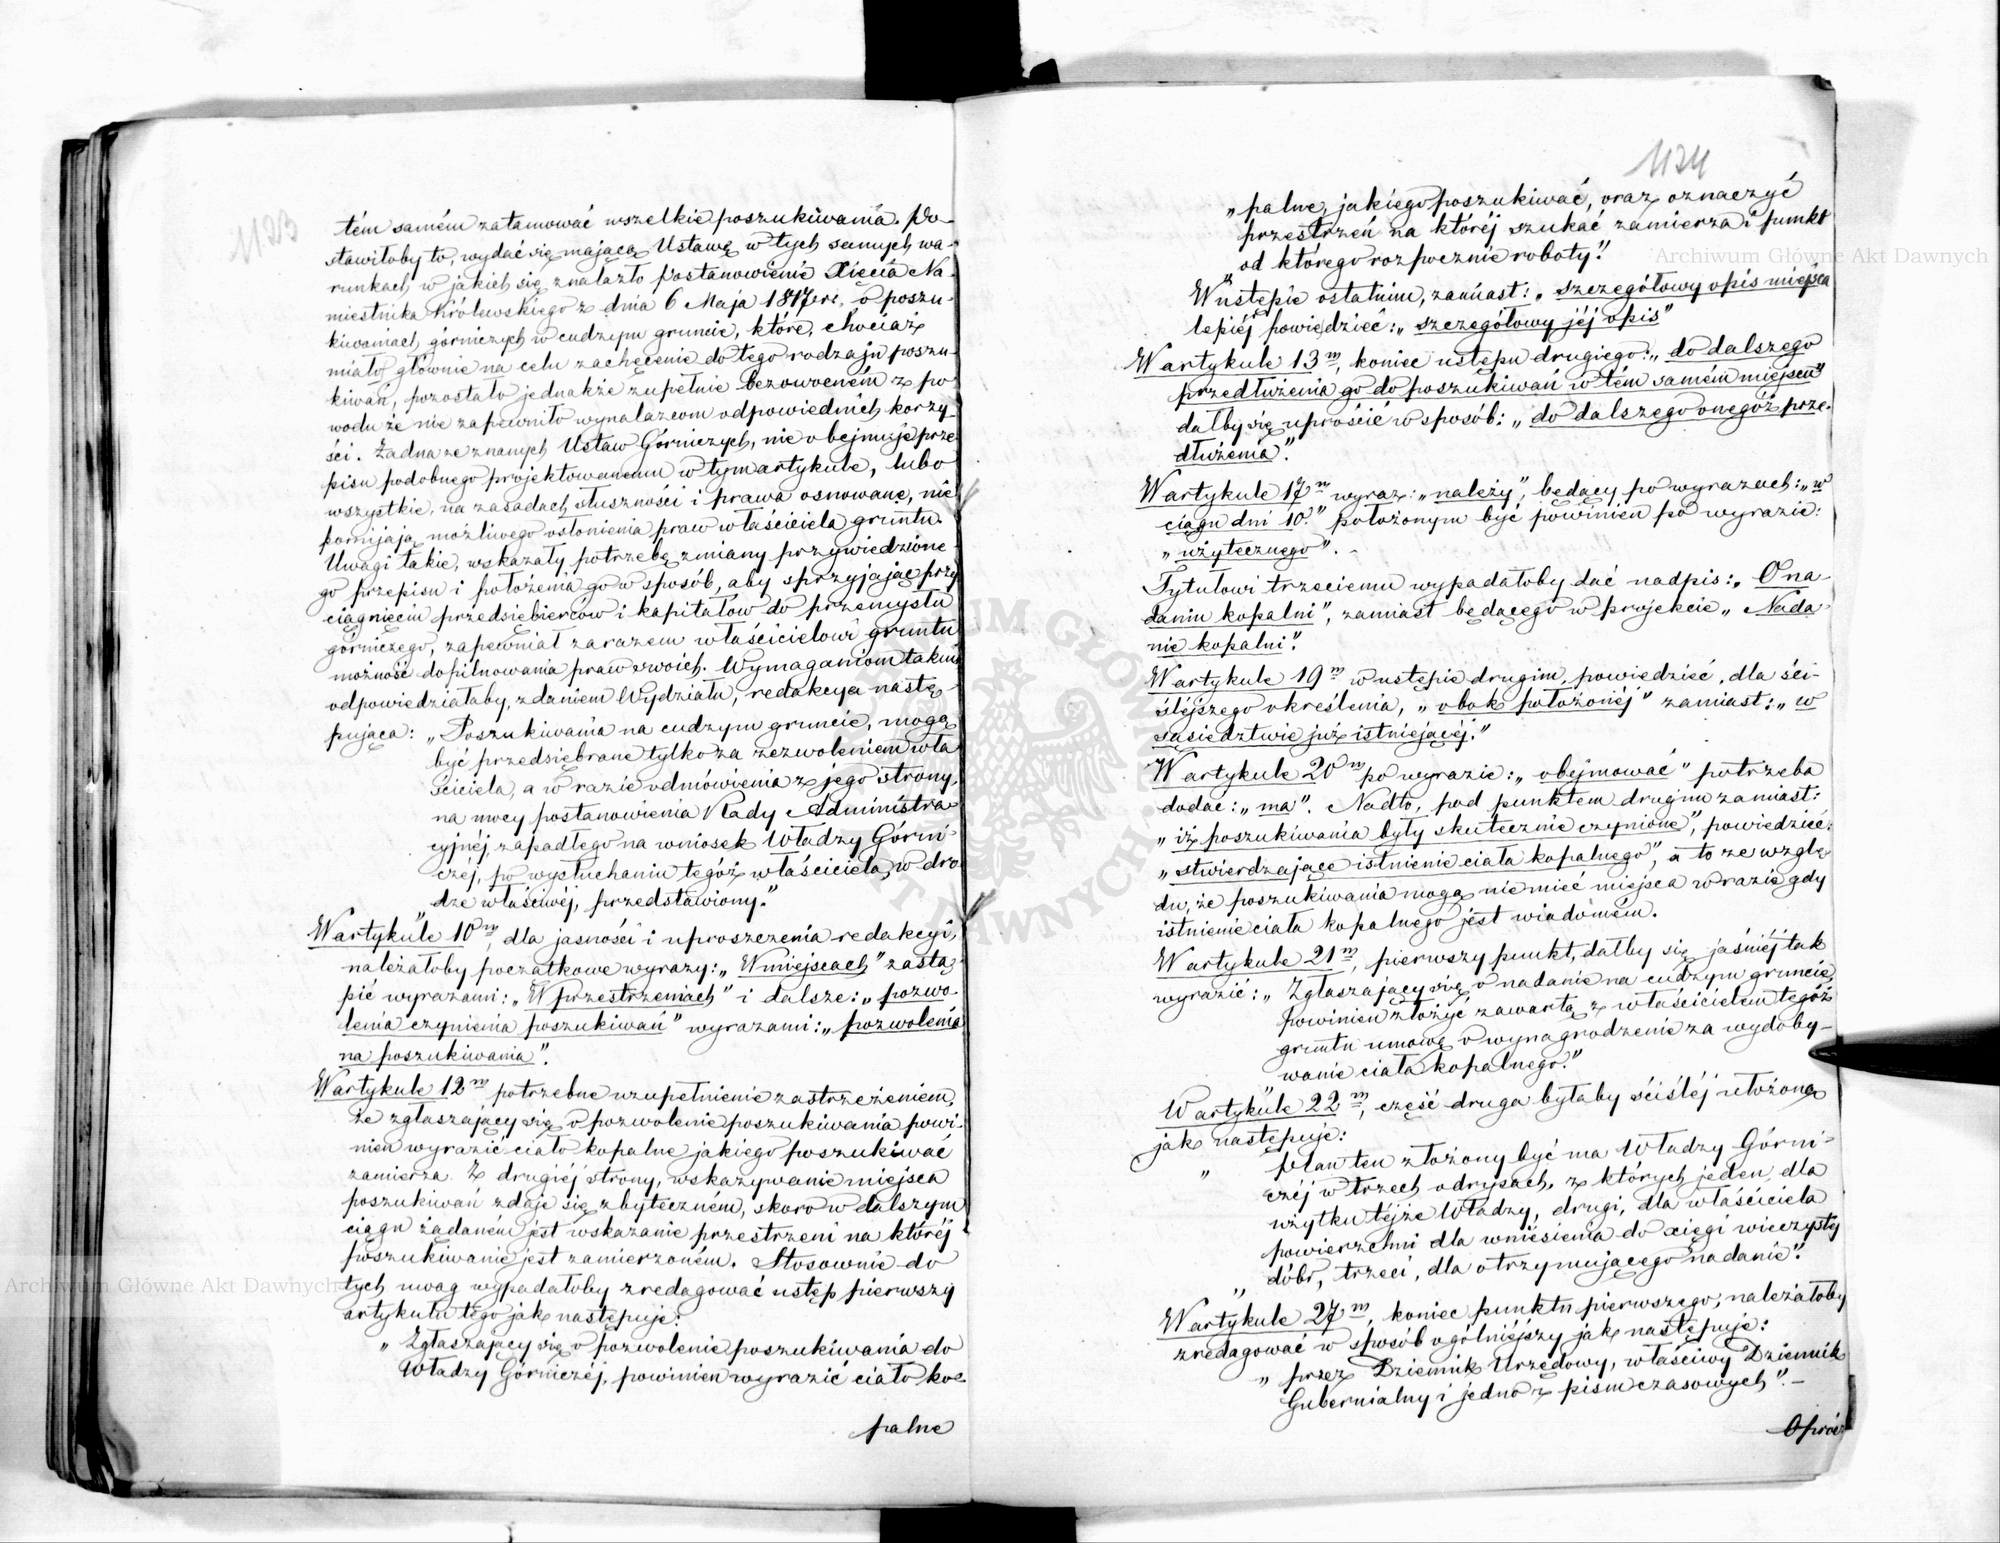 1123
tém samém zatamować wszelkie poszukiwania. Po-
stawiłoby to, wydać się mającą Ustawę w tych samych wa-
runkach w jakich się znalazło Postanowienie Xięcia Na-
miestnika Królewskiego z dnia 6 Maja 1817 r., o poszu-
kiwaniach górniczych w cudzym gruncie, które, chociaż
miało głównie na celu zachęcenie do tego rodzaju poszu-
kiwań, pozostało jednakże zupełnie bezowocném z po-
wodu że nie zapewniło wynalazcom odpowiednich korzy-
ści. Żadna ze znanych Ustaw Górniczych, nie obejmuje prze-
pisu podobnego projektowanemu w tym artykule, lubo
wszystkie, na zasadach słuszności i prawa osnowane, nie
pomijają możliwego osłonienia praw właściciela gruntu.
Uwagi takie, wskazały potrzebę zmiany przywiedzione-
go przepisu i położenia go w sposób, aby sprzyjając przy-
ciągnięciu przedsiębierców i kapitałów do przemysłu
górniczego, zapewniał zarazem właścicielowi gruntu
możność dopilnowania praw swoich. Wymaganiom takim
odpowiedziałaby, zdaniem Wydziału, redakcya nastę-
pująca: „Poszukiwania na cudzym gruncie, mogą
być przedsiębrane tylko za zezwoleniem wła-
ściciela, a w razie odmówienia z jego strony,
na mocy postanowienia Rady Administra-
cyjnéj, zapadłego na wniosek Władzy Górni-
czéj, po wysłuchaniu tegóż właściciela, w dro-
dze właściwéj, przedstawiony."
W artykule 10m, dla jasności i uproszczenia redakcyi,
należałoby początkowe wyrazy: „W miejscach" zastą-
pić wyrazami: „W przestrzeniach" i dalsze: „pozwo-
lenia czynienia poszukiwań" wyrazami: „pozwolenia
na poszukiwania".
W artykule 12m potrzebne uzupełnienie zastrzeżeniem,
że zgłaszający się o pozwolenie poszukiwania powi-
nien wyrazić ciało kopalne jakiego poszukiwać
zamierza. Z drugiéj strony, wskazywanie miejsca
poszukiwań zdaje się zbyteczném, skoro w dalszym
ciągu żądaném jest wskazanie przestrzeni na któréj
poszukiwanie jest zamierzoném. Stosownie do
tych uwag wypadałoby zredagować ustęp pierwszy
artykułu tego jak następuje:
„Zgłaszający się o pozwolenie poszukiwania do
Władzy Górniczéj, powinien wyrazić ciało ko-
palne
1124
„palne, jakiego poszukiwać, oraz oznaczyć
przestrzeń na któréj szukać zamierza i punkt
od którego rozpocznie roboty."
W ustępie ostatnim, zamiast: „szczegółowy opis miejsca
lepiéj powiedzieć: „szczegółowy jéj opis"
W artykule 13m, koniec ustępu drugiego: „do dalszego
przedłużenia go do poszukiwań w tém samém miejscu"
dałby się uprościć w sposób: „do dalszego onegóż prze-
dłużenia".
W artykule 17m wyraz: „należy", będący po wyrazach: „w
ciągu dni 10." położonym być powinien po wyrazie:
„użytecznego". -
Tytułowi trzeciemu wypadałoby dać nadpis: „O na-
daniu kopalni", zamiast będącego w projekcie „Nada-
nie kopalni".
W artykule 19m w ustępie drugim, powiedzieć, dla ści-
ślejszego określenia, „obok położonéj" zamiast: „w
sąsiedztwie już istniejącéj."
W artykule 20m po wyrazie: „obejmować" potrzeba
dodać: „ma". Nadto, pod punktem drugim zamiast:
„iż poszukiwania były skutecznie czynione", powiedzieć:
„stwierdzające istnienie ciała kopalnego", a to ze wzglę-
du, że poszukiwania mogą nie mieć miejsca w razie gdy
istnienie ciała kopalnego jest wiadomém.
W artykule 21m, pierwszy punkt, dałby się jaśniéj tak
wyrazić: „Zgłaszający się o nadanie na cudzym gruncie,
powinien złożyć zawartą z właścicielem tegóż
gruntu umowę o wynagrodzenie za wydoby-
wanie ciała kopalnego."
W artykule 22m, część druga byłaby ściśléj ułożoną
jak następuje:
„Plan ten złożony być ma Władzy Górni-
czéj w trzech odrysach, z których jeden, dla
użytku téjże Władzy, drugi, dla właściciela
powierzchni dla wniesienia do xięgi wieczystéj
dóbr, trzeci, dla otrzymującego nadanie".
W artykule 27m, koniec punktu pierwszego, należałoby
zredagować w sposób ogólniejszy jak następuje:
„przez Dziennik Urzędowy, właściwy Dziennik
Gubernialny i jedno z pism czasowych". -
Oprócz
Archiwum Główne Akt Dawnych
Archiwum Główne Akt Dawnych
ARCHIWUM GŁÓWNE AKT DAWNYCH